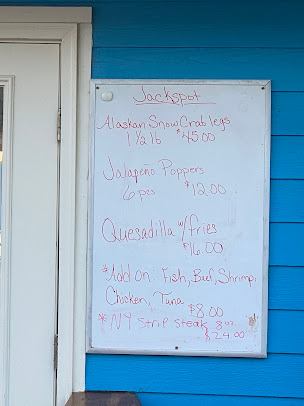 Jackspot
Alaskan Snow Crab legs
1 1/2 lb $45.00
Jalapeño Poppers
6 pzs $12.00
Quesadilla w/fries
$16.00
* Add on Fish, Beef, Shrimp,
Chicken, Tuna
$8.00
* NY Strip Steak 8 oz.
$24.00